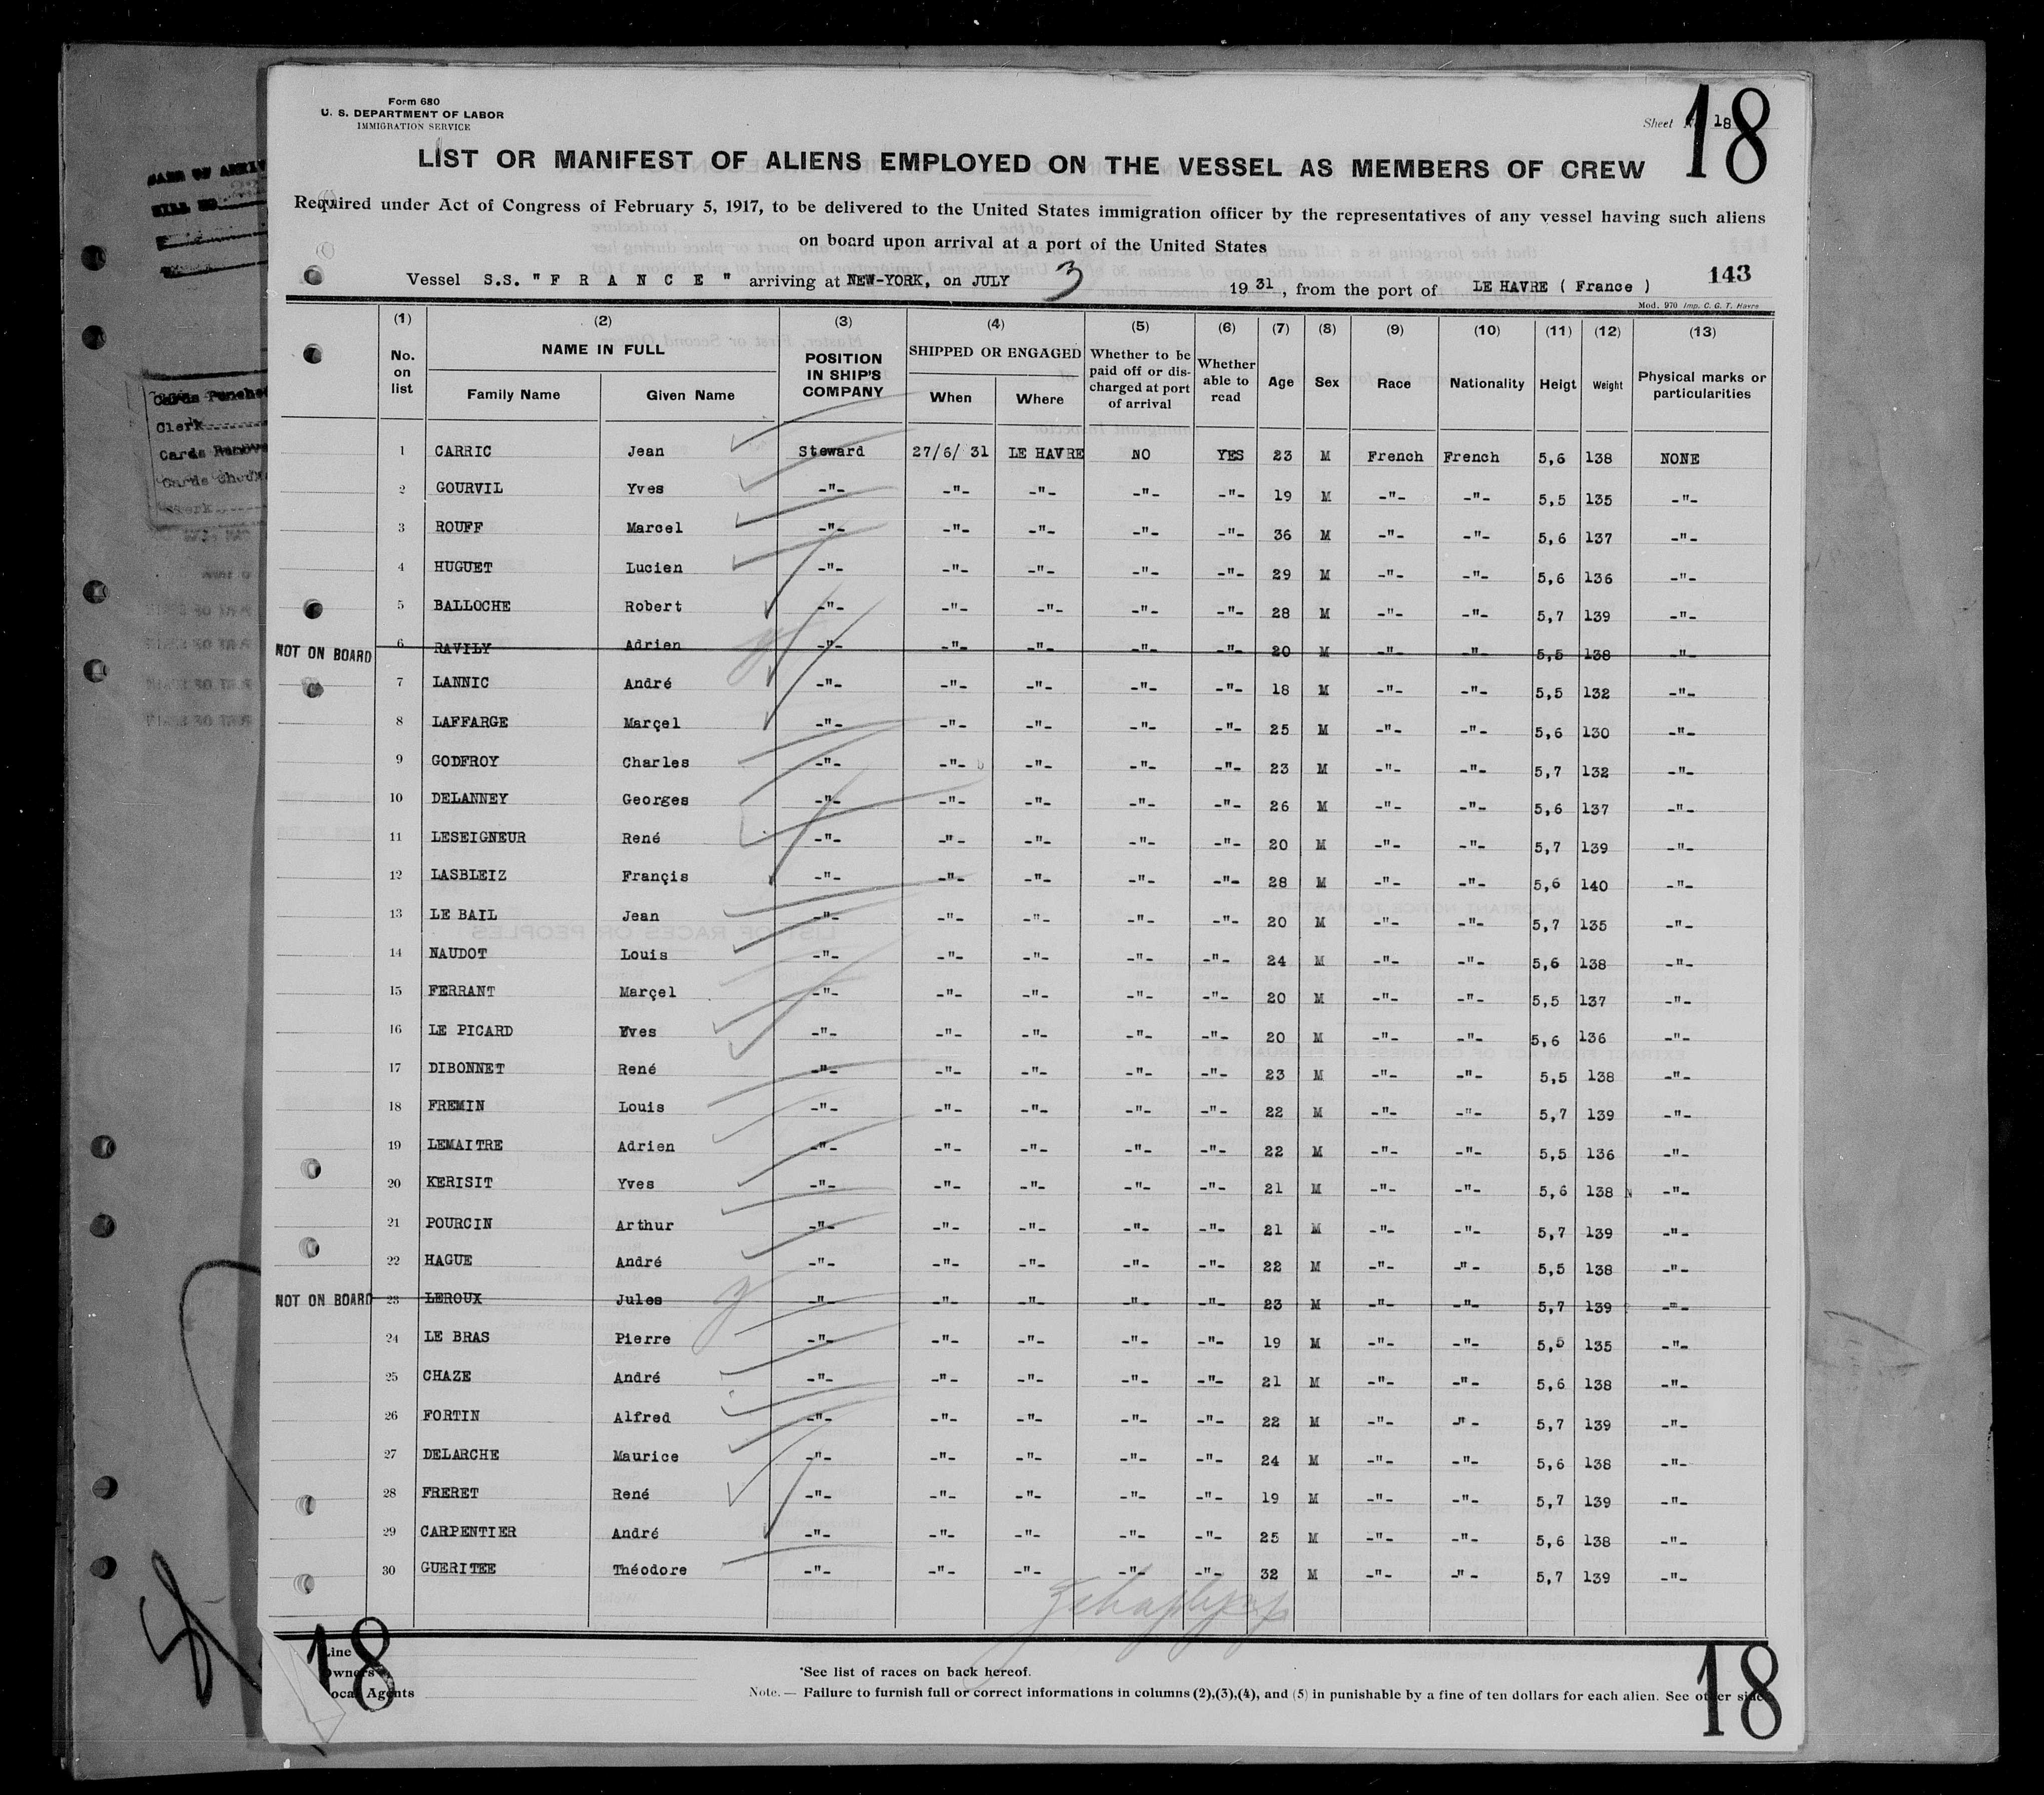 Form 680
U. S. DEPARTMENT OF LABOR
IMMIGRATION SERVICE
Sheet No 18
18
LIST OR MANIFEST OF ALIENS EMPLOYED ON THE VESSEL AS MEMBERS OF CREW
Required under Act of Congress of February 5, 1917, to be delivered to the United States immigration officer by the representatives of any vessel having such aliens
on board upon arrival at a port of the United States
Vessel S.S. " F R A N C E " arriving at NEW-YORK, on JULY 3 1931, from the port of LE HAVRE ( France )
143
Mod. 970 Imp. C. G. T. Havre
(1) (2) (3) (4) (5) (6) (7) (8) (9) (10) (11) (12) (13)
No. on list NAME IN FULL Family Name Given Name POSITION IN SHIP'S COMPANY SHIPPED OR ENGAGED When Where Whether to be paid off or discharged at port of arrival Whether able to read Age Sex Race Nationality Heigt Weight Physical marks or particularities
1 CARRIC Jean Steward 27/6/ 31 LE HAVRE NO YES 23 M French French 5,6 138 NONE
2 GOURVIL Yves -"- -"- -"- -"- -"- 19 M -"- -"- 5,5 135 -"-
3 ROUFF Marcel -"- -"- -"- -"- -"- 36 M -"- -"- 5,6 137 -"-
4 HUGUET Lucien -"- -"- -"- -"- -"- 29 M -"- -"- 5,6 136 -"-
5 BALLOCHE Robert -"- -"- -"- -"- -"- 28 M -"- -"- 5,7 139 -"-
NOT ON BOARD 6 RAVILY Adrien -"- -"- -"- -"- -"- 20 M -"- -"- 5,5 138 -"-
7 LANNIC André -"- -"- -"- -"- -"- 18 M -"- -"- 5,5 132 -"-
8 LAFFARGE Marçel -"- -"- -"- -"- -"- 25 M -"- -"- 5,6 130 -"-
9 GODFROY Charles -"- -"- -"- -"- -"- 23 M -"- -"- 5,7 132 -"-
10 DELANNEY Georges -"- -"- -"- -"- -"- 26 M -"- -"- 5,6 137 -"-
11 LESEIGNEUR René -"- -"- -"- -"- -"- 20 M -"- -"- 5,7 139 -"-
12 LASBLEIZ Françis -"- -"- -"- -"- -"- 28 M -"- -"- 5,6 140 -"-
13 LE BAIL Jean -"- -"- -"- -"- -"- 20 M -"- -"- 5,7 135 -"-
14 NAUDOT Louis -"- -"- -"- -"- -"- 24 M -"- -"- 5,6 138 -"-
15 FERRANT Marçel -"- -"- -"- -"- -"- 20 M -"- -"- 5,5 137 -"-
16 LE PICARD Yves -"- -"- -"- -"- -"- 20 M -"- -"- 5,6 136 -"-
17 DIBONNET René -"- -"- -"- -"- -"- 23 M -"- -"- 5,5 138 -"-
18 FREMIN Louis -"- -"- -"- -"- -"- 22 M -"- -"- 5,7 139 -"-
19 LEMAITRE Adrien -"- -"- -"- -"- -"- 22 M -"- -"- 5,5 136 -"-
20 KERISIT Yves -"- -"- -"- -"- -"- 21 M -"- -"- 5,6 138 -"-
21 POURCIN Arthur -"- -"- -"- -"- -"- 21 M -"- -"- 5,7 139 -"-
22 HAGUE André -"- -"- -"- -"- -"- 22 M -"- -"- 5,5 138 -"-
NOT ON BOARD 23 LEROUX Jules -"- -"- -"- -"- -"- 23 M -"- -"- 5,7 139 -"-
24 LE BRAS Pierre -"- -"- -"- -"- -"- 19 M -"- -"- 5,5 135 -"-
25 CHAZE André -"- -"- -"- -"- -"- 21 M -"- -"- 5,6 138 -"-
26 FORTIN Alfred -"- -"- -"- -"- -"- 22 M -"- -"- 5,7 139 -"-
27 DELARCHE Maurice -"- -"- -"- -"- -"- 24 M -"- -"- 5,6 138 -"-
28 FRERET René -"- -"- -"- -"- -"- 19 M -"- -"- 5,7 139 -"-
29 CARPENTIER André -"- -"- -"- -"- -"- 25 M -"- -"- 5,6 138 -"-
30 GUERITEE Théodore -"- -"- -"- -"- -"- 32 M -"- -"- 5,7 139 -"-
Line
Owners
Local Agents
18
*See list of races on back hereof.
Note. — Failure to furnish full or correct informations in columns (2),(3),(4), and (5) in punishable by a fine of ten dollars for each alien. See other side.
18